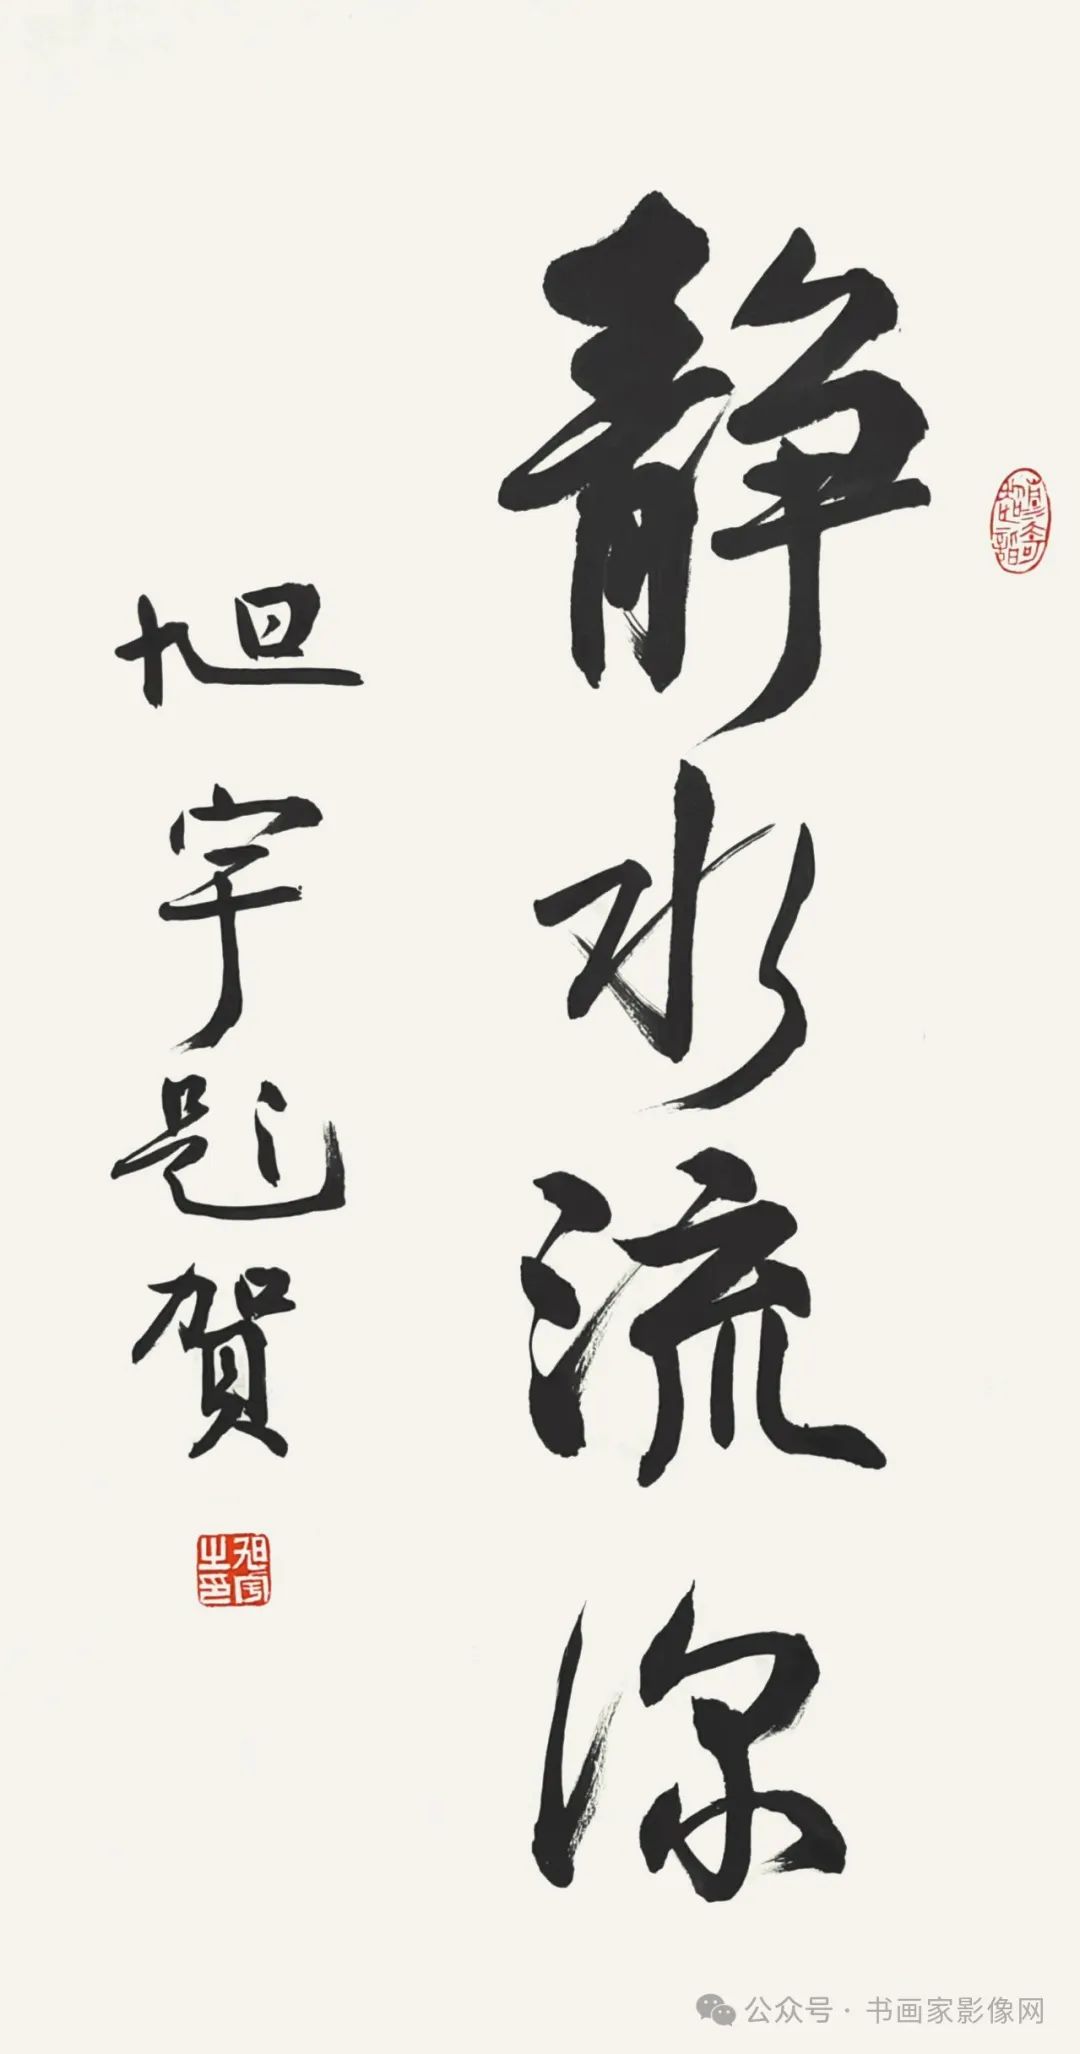 静水流深
旭宇题贺
旭宇之印
公众号 · 书画家影像网